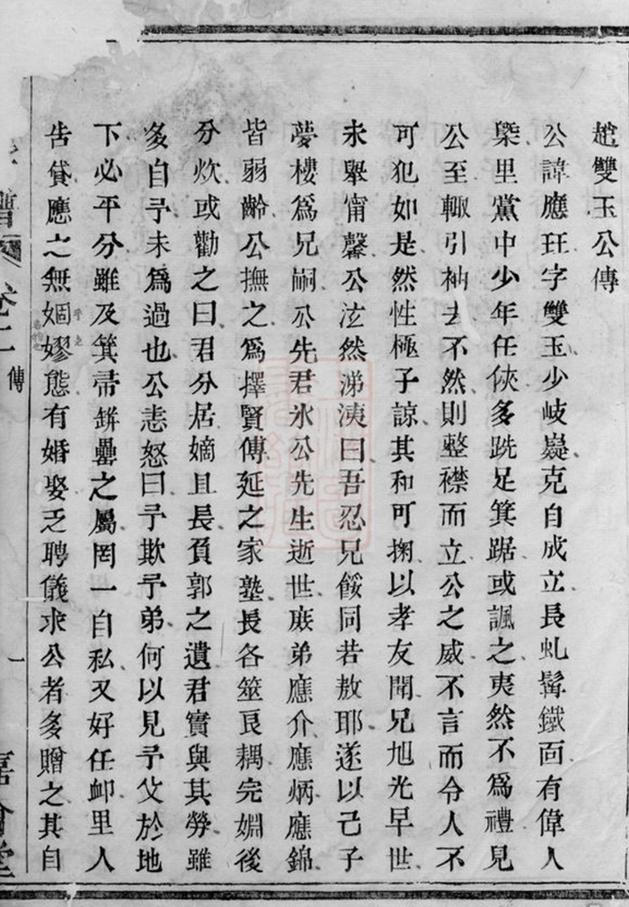 趙雙玉公傳
公諱應玨字雙玉少岐嶷克自成立長虬髯鐵面有偉人
槩里黨中少年任俠多跣足箕踞或諷之夷然不爲禮見
公至輙引衲去不然則整襟而立公之威不言而令人不
可犯如是然性極子諒其和可掬以孝友聞兄旭光早世
未舉甯馨公泫然涕洟曰吾忍兄餒同若敖耶遂以己子
夢樓爲兄嗣公先君氷公先生逝世庶弟應介應炳應錦
皆弱齡公撫之爲擇賢傅延之家塾長各筮艮耦完婣後
分炊或勸之曰君分居嫡且長負郭之遺君實與其勞雖
多自予未爲過也公恚怒曰予欺予弟何以見予父於地
下必平分雖及箕帚缾罍之屬罔一自私又好任卹里人
告貸應之無婟嫪態有婚娶乏聘儀求公者多贈之其自
譜 卷二 傳 一